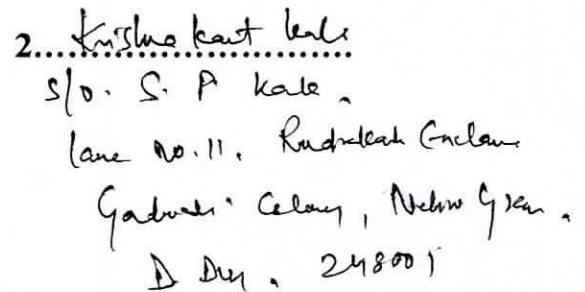 2. Krishna kant kala
S/o. S. P kala.
lane no. 11. Rudraksh Enclave
Gadwali Colony, Nehru Gram.
D Dun. 248001